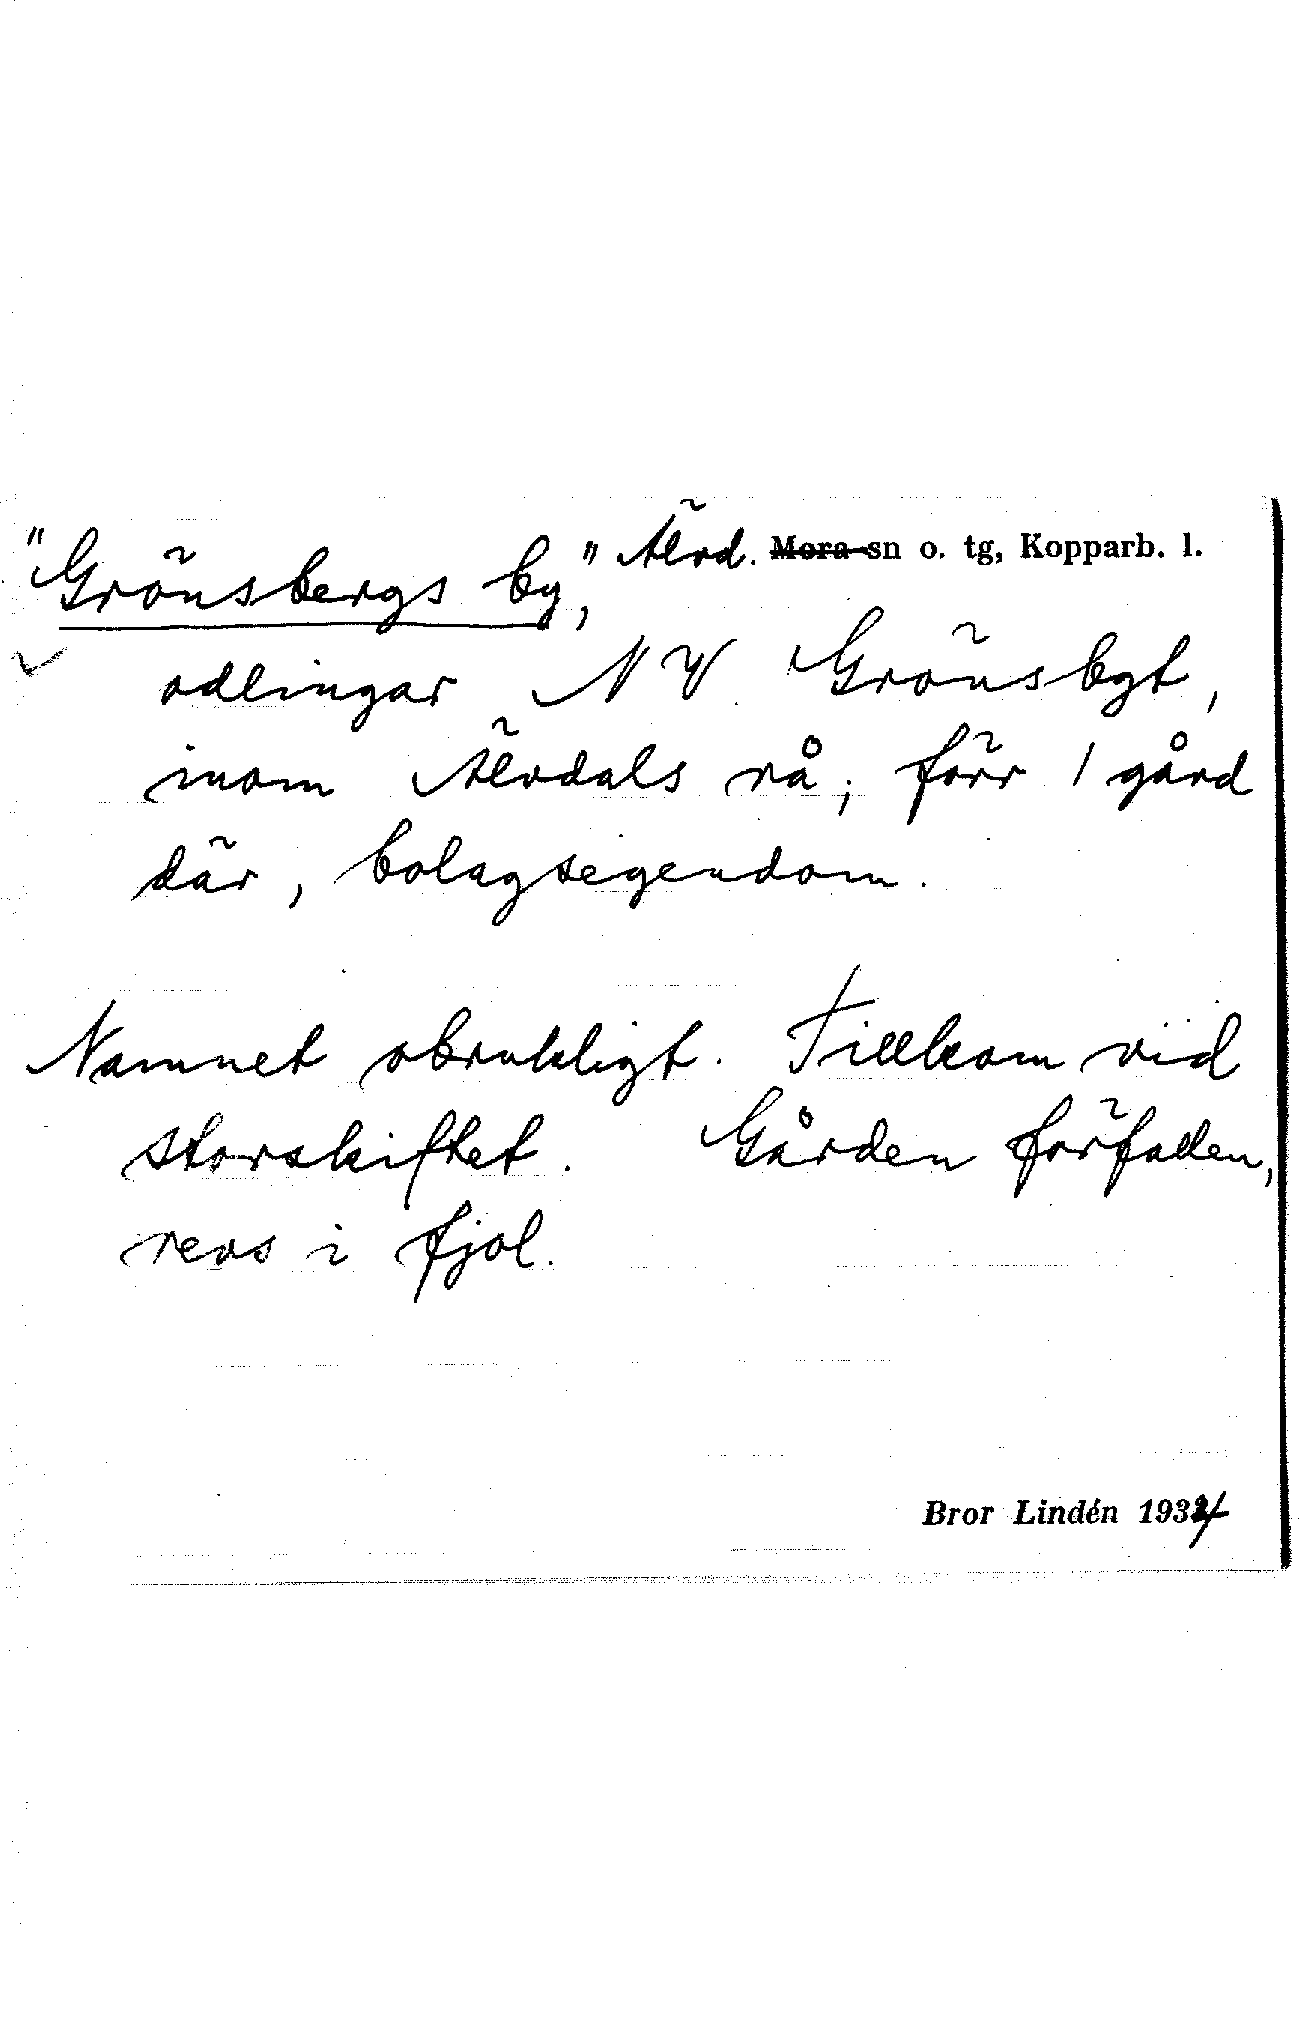 "Grönsbergs by," Älvd. Mora sn o. tg, Kopparb. l.
odlingar NV Grönsbgt,
inom Älvdals rå; förr 1 gård
där, bolagsegendom.
Namnet obrukligt. Tillkom vid
storskiftet. Gården förfallen,
revs i fjol.
Bror Lindén 1934